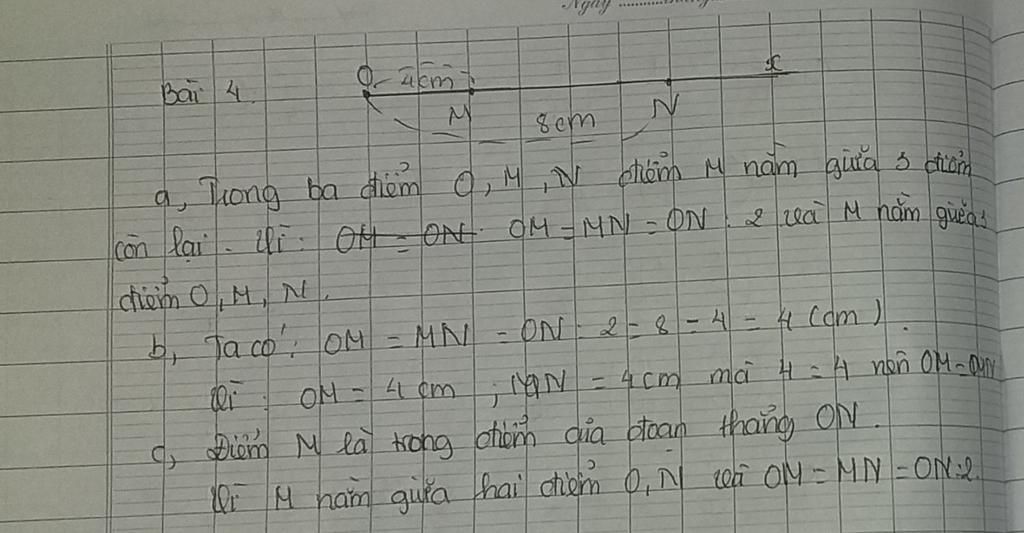 Ngày
Bài 4. O 4cm x
M 8cm N
a, Trong ba điểm O, M, N điểm M nằm giữa 3 điểm
còn lại. Vì: OM = ON. OM = MN = ON : 2 và M nằm giữa 3
điểm O, M, N.
b, Ta có: OM = MN = ON : 2 = 8 - 4 = 4 (cm).
Vì: OM = 4 cm; MN = 4cm mà 4 = 4 nên OM = MN
c, Điểm M là trong điểm của đoạn thẳng ON.
Vì M nằm giữa hai điểm O, N và OM = MN = ON:2.